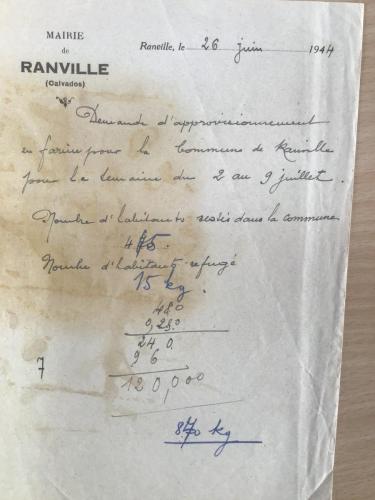 MAIRIE
de
RANVILLE
(Calvados)
Ranville, le 26 juin 1944
Demande d'approvisionnement
en farine pour la Commune de Ranville
pour la semaine du 2 au 9 juillet.
Nombre d'habitants restés dans la commune
Nombre d'habitants refugé
15 kg.
480
0,250
240
96
7
120,000
870 kg